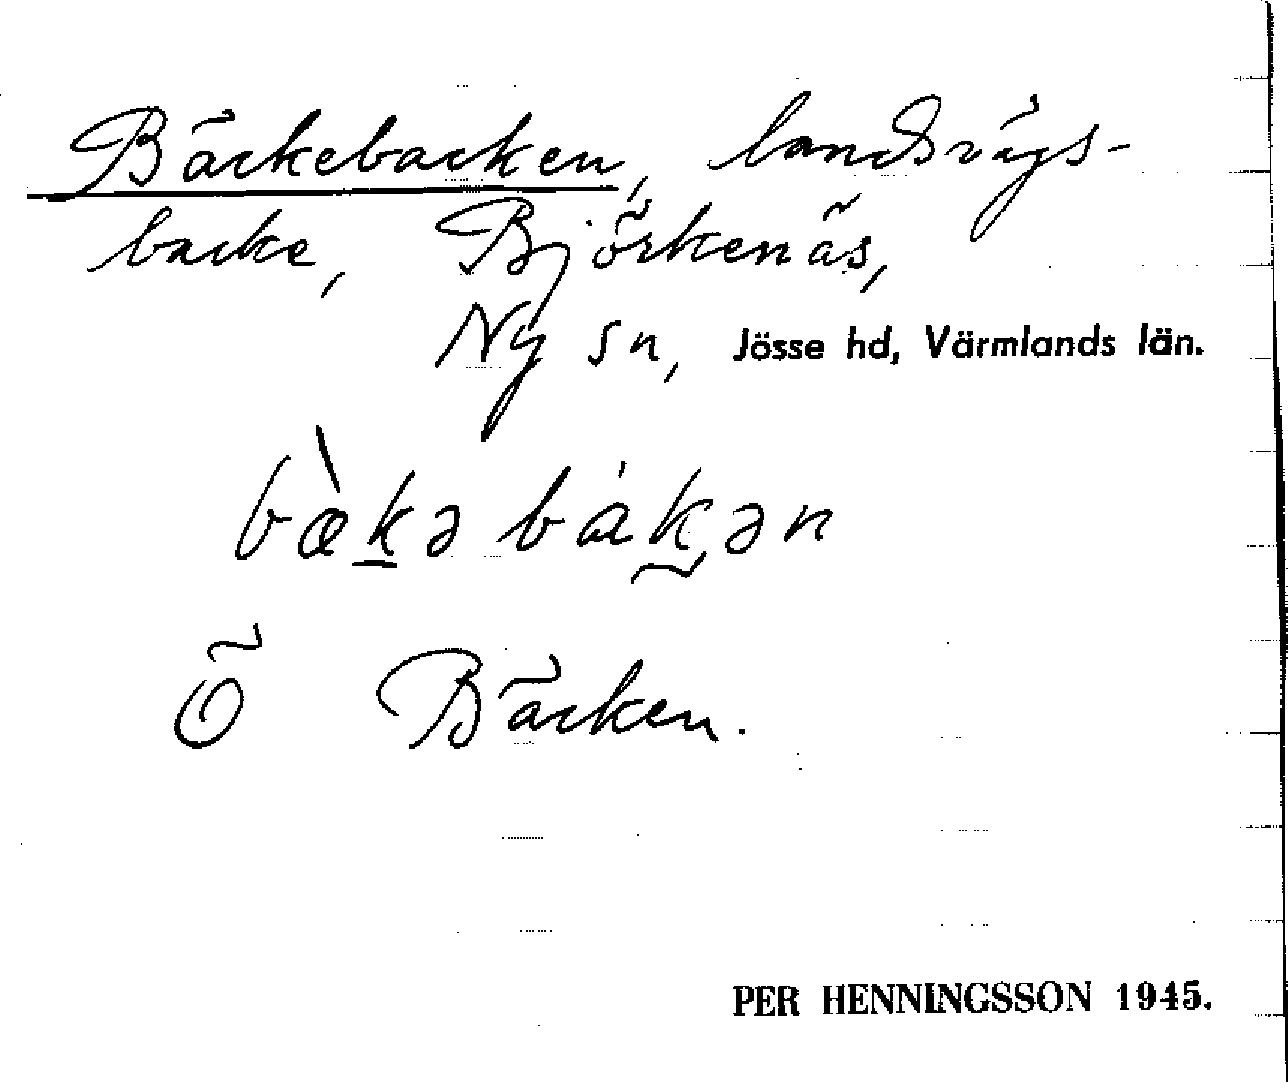 Bäckebacken, landsvägs-
backe, Björkenäs,
Ny sn, Jösse hd, Värmlands län.
bæ̀kə bákən
Ö Bäcken.
PER HENNINGSSON 1945.